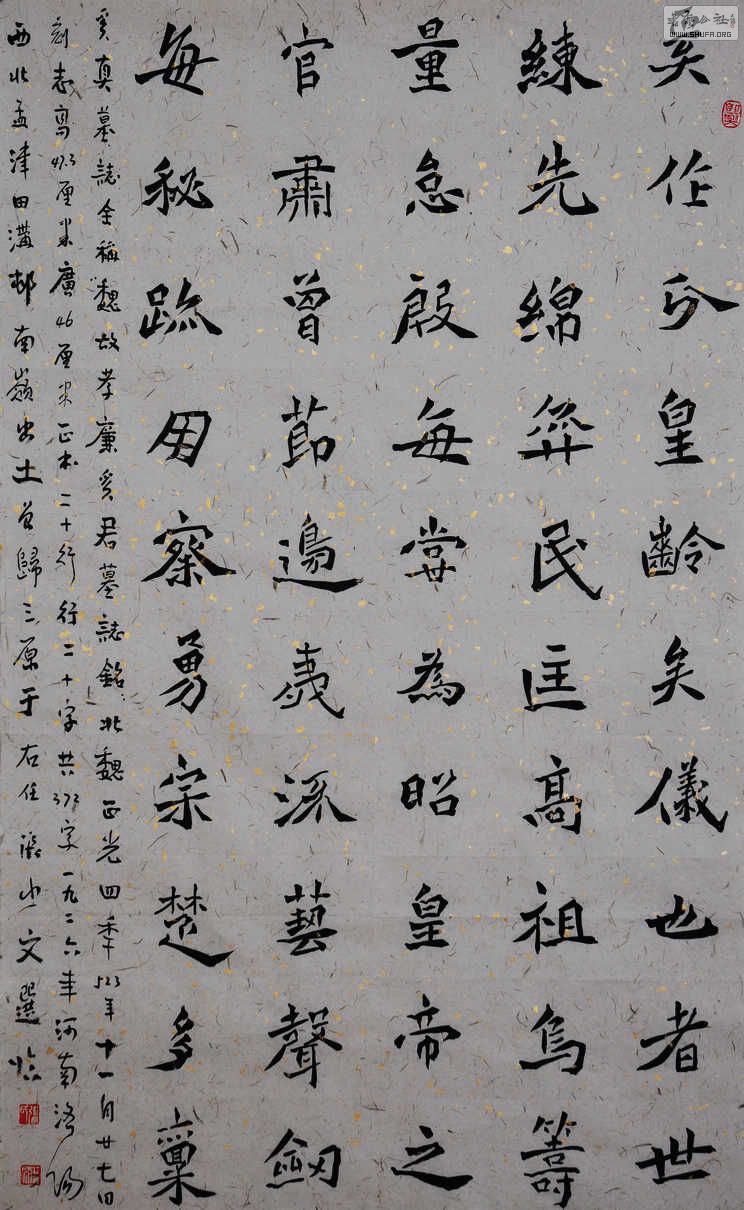 矣作兮皇齡矣儀也者世
練先綿民匡高祖烏籌
量怠殷每甞為昭皇帝之
官肅曾節邊夷流藝聲劒
每秘疏用察勇宗楚多稟
奚真墓誌全稱魏故孝廉奚君墓誌銘北魏正光四年523年十一月廿七日
刻志高47.3厘米廣46厘米正書二十行行二十字共373字一九二六年河南洛陽
西北孟津田溝邨南嶺出土曾歸三原于右任張文選臨
書法公社
WWW.SHUFA.ORG